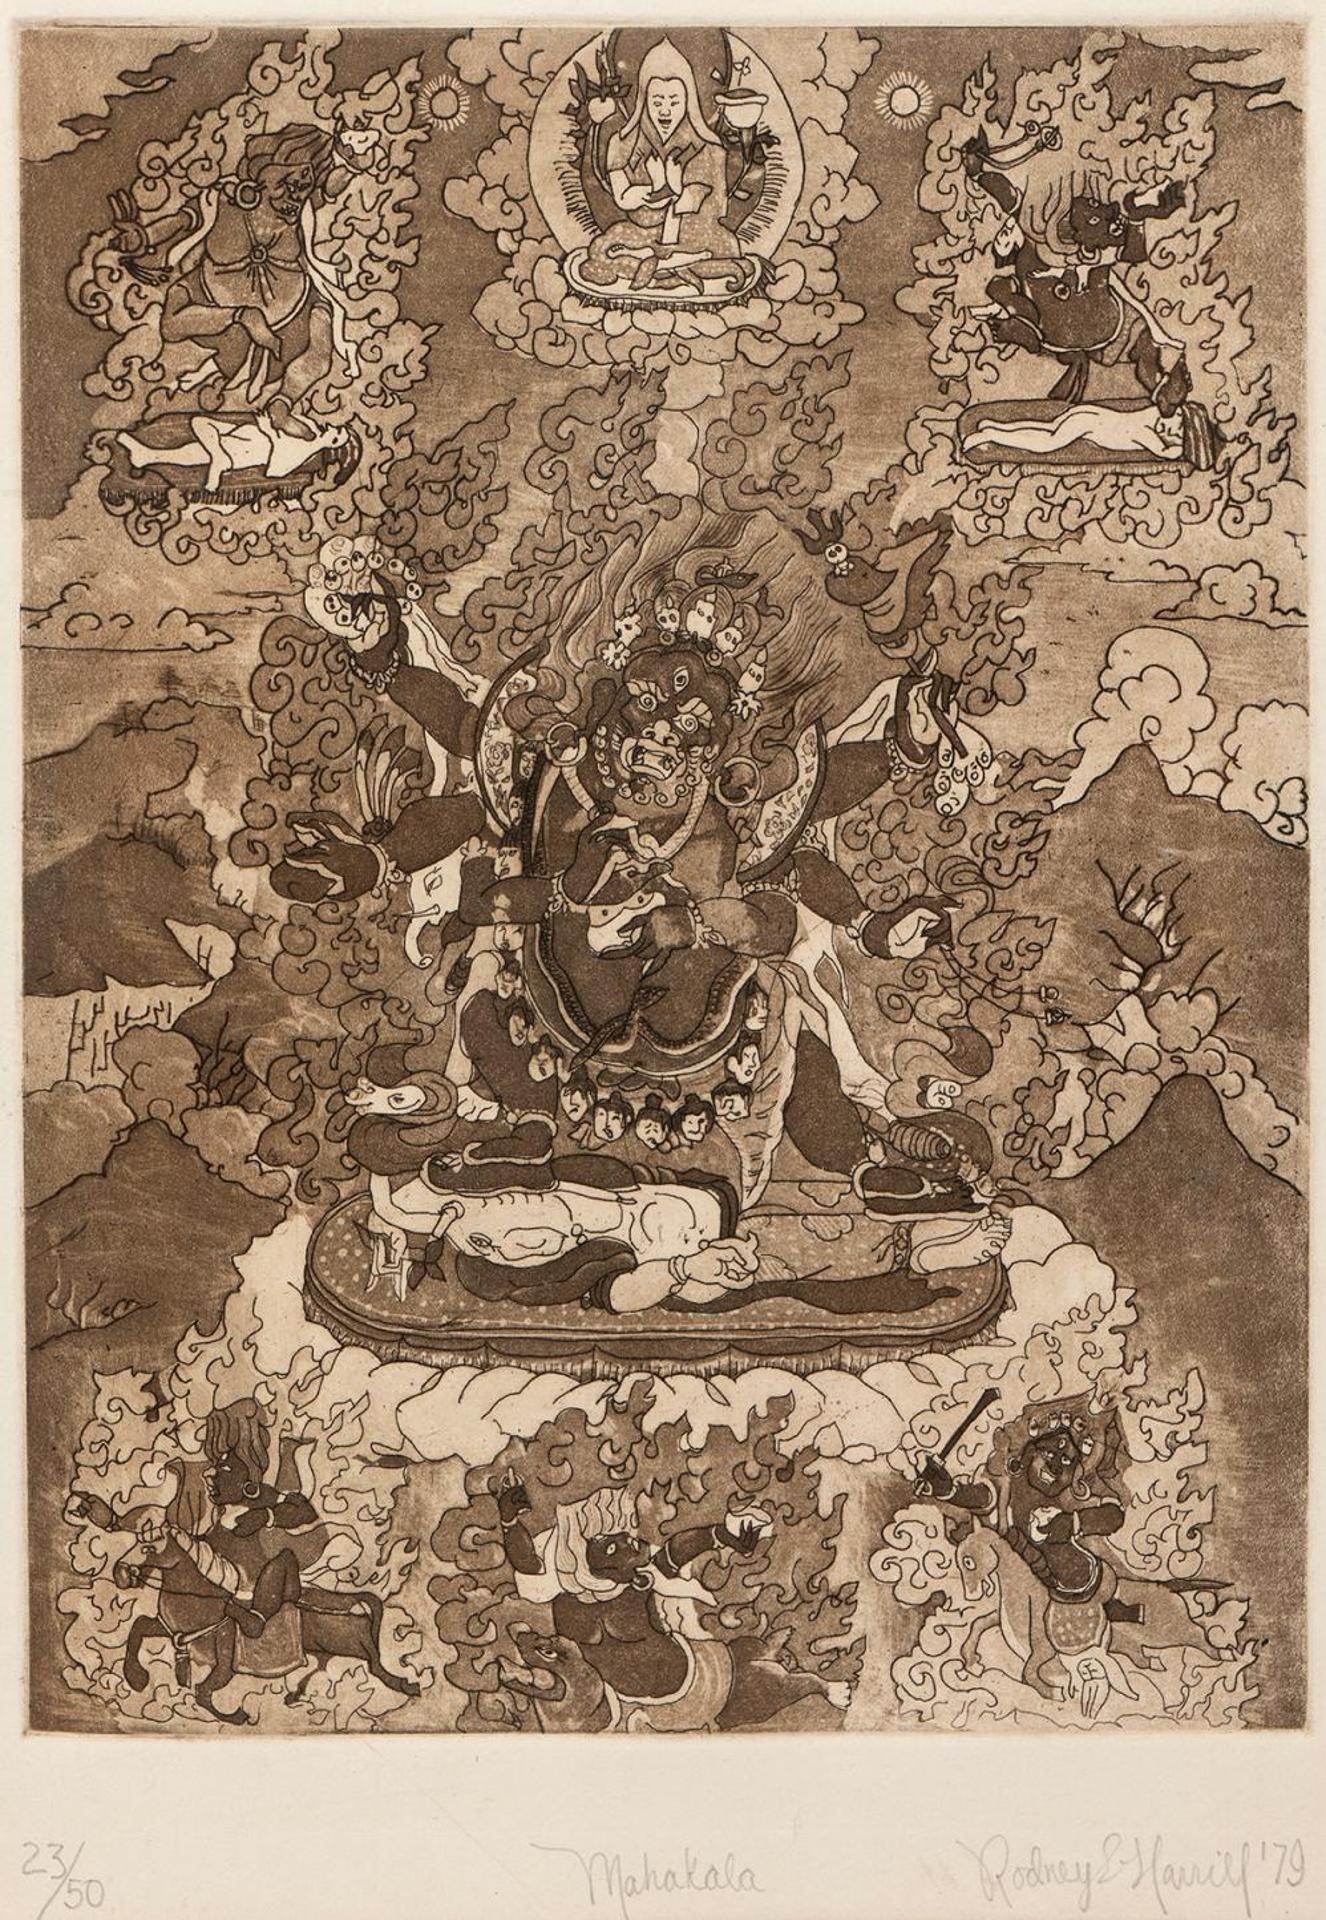 23/50 Mahakala Rodney E Harrill '79